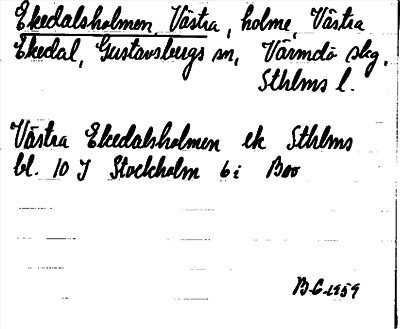 Ekedalsholmen, Västra, holme, Västra
Ekedal, Gustavsbergs sn, Värmdö skg,
Sthlms l.
Västra Ekedalsholmen ek Sthlms
bl. 10 J Stockholm 6 i Boo
B-G-1959